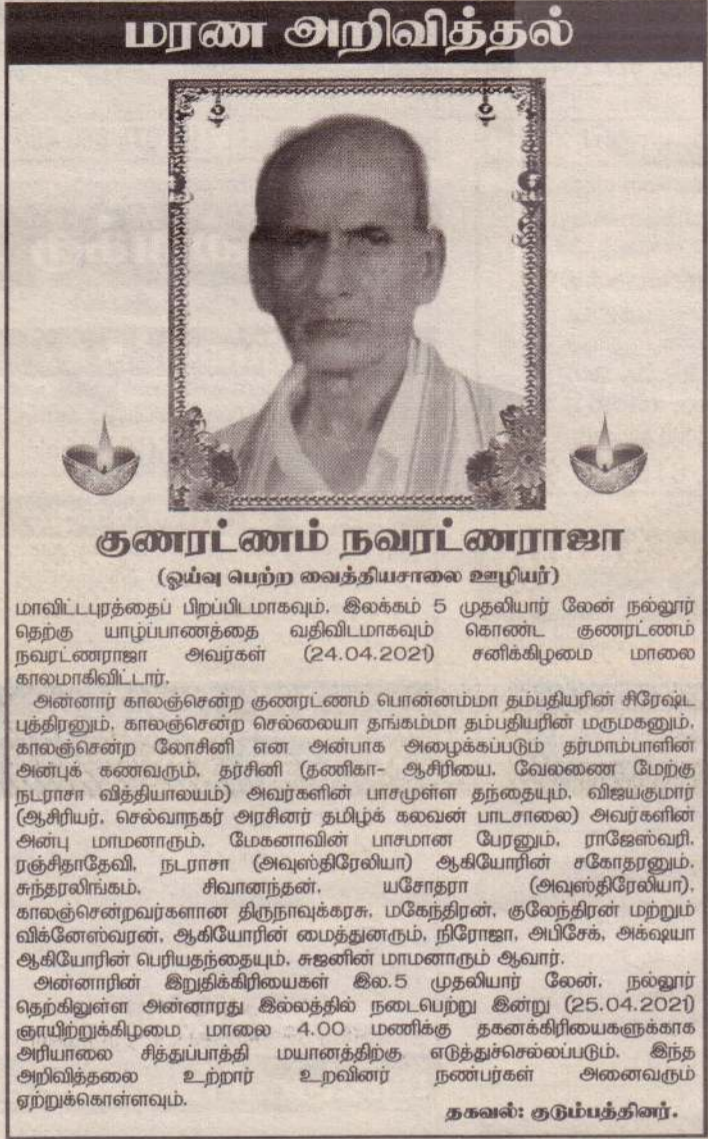 மரண அறிவித்தல்
குணரட்ணம் நவரட்ணராஜா
(ஓய்வு பெற்ற வைத்தியசாலை ஊழியர்)
மாவிட்டபுரத்தைப் பிறப்பிடமாகவும், இலக்கம் 5 முதலியார் லேன் நல்லூர்
தெற்கு யாழ்ப்பாணத்தை வதிவிடமாகவும் கொண்ட குணரட்ணம்
நவரட்ணராஜா அவர்கள் (24.04.2021) சனிக்கிழமை மாலை
காலமாகிவிட்டார்.
அன்னார் காலஞ்சென்ற குணரட்ணம் பொன்னம்மா தம்பதியரின் சிரேஷ்ட
புத்திரனும், காலஞ்சென்ற செல்லையா தங்கம்மா தம்பதியரின் மருமகனும்,
காலஞ்சென்ற லோசினி என அன்பாக அழைக்கப்படும் தர்மாம்பாளின்
அன்புக் கணவரும், தர்சினி (தணிகா- ஆசிரியை, வேலணை மேற்கு
நடராசா வித்தியாலயம்) அவர்களின் பாசமுள்ள தந்தையும், விஜயகுமார்
(ஆசிரியர், செல்வாநகர் அரசினர் தமிழ்க் கலவன் பாடசாலை) அவர்களின்
அன்பு மாமனாரும், மேகனாவின் பாசமான பேரனும், ராஜேஸ்வரி,
ரஞ்சிதாதேவி, நடராசா (அவுஸ்திரேலியா) ஆகியோரின் சகோதரனும்,
சுந்தரலிங்கம், சிவானந்தன், யசோதரா (அவுஸ்திரேலியா),
காலஞ்சென்றவர்களான திருநாவுக்கரசு, மகேந்திரன், குலேந்திரன் மற்றும்
விக்னேஸ்வரன், ஆகியோரின் மைத்துனரும், நிரோஜா, அபிசேக், அக்ஷயா
ஆகியோரின் பெரியதந்தையும், சுஜனின் மாமனாரும் ஆவார்.
அன்னாரின் இறுதிக்கிரியைகள் இல.5 முதலியார் லேன், நல்லூர்
தெற்கிலுள்ள அன்னாரது இல்லத்தில் நடைபெற்று இன்று (25.04.2021)
ஞாயிற்றுக்கிழமை மாலை 4.00 மணிக்கு தகனக்கிரியைகளுக்காக
அரியாலை சித்துப்பாத்தி மயானத்திற்கு எடுத்துச்செல்லப்படும். இந்த
அறிவித்தலை உற்றார் உறவினர் நண்பர்கள் அனைவரும்
ஏற்றுக்கொள்ளவும்.
தகவல்: குடும்பத்தினர்.